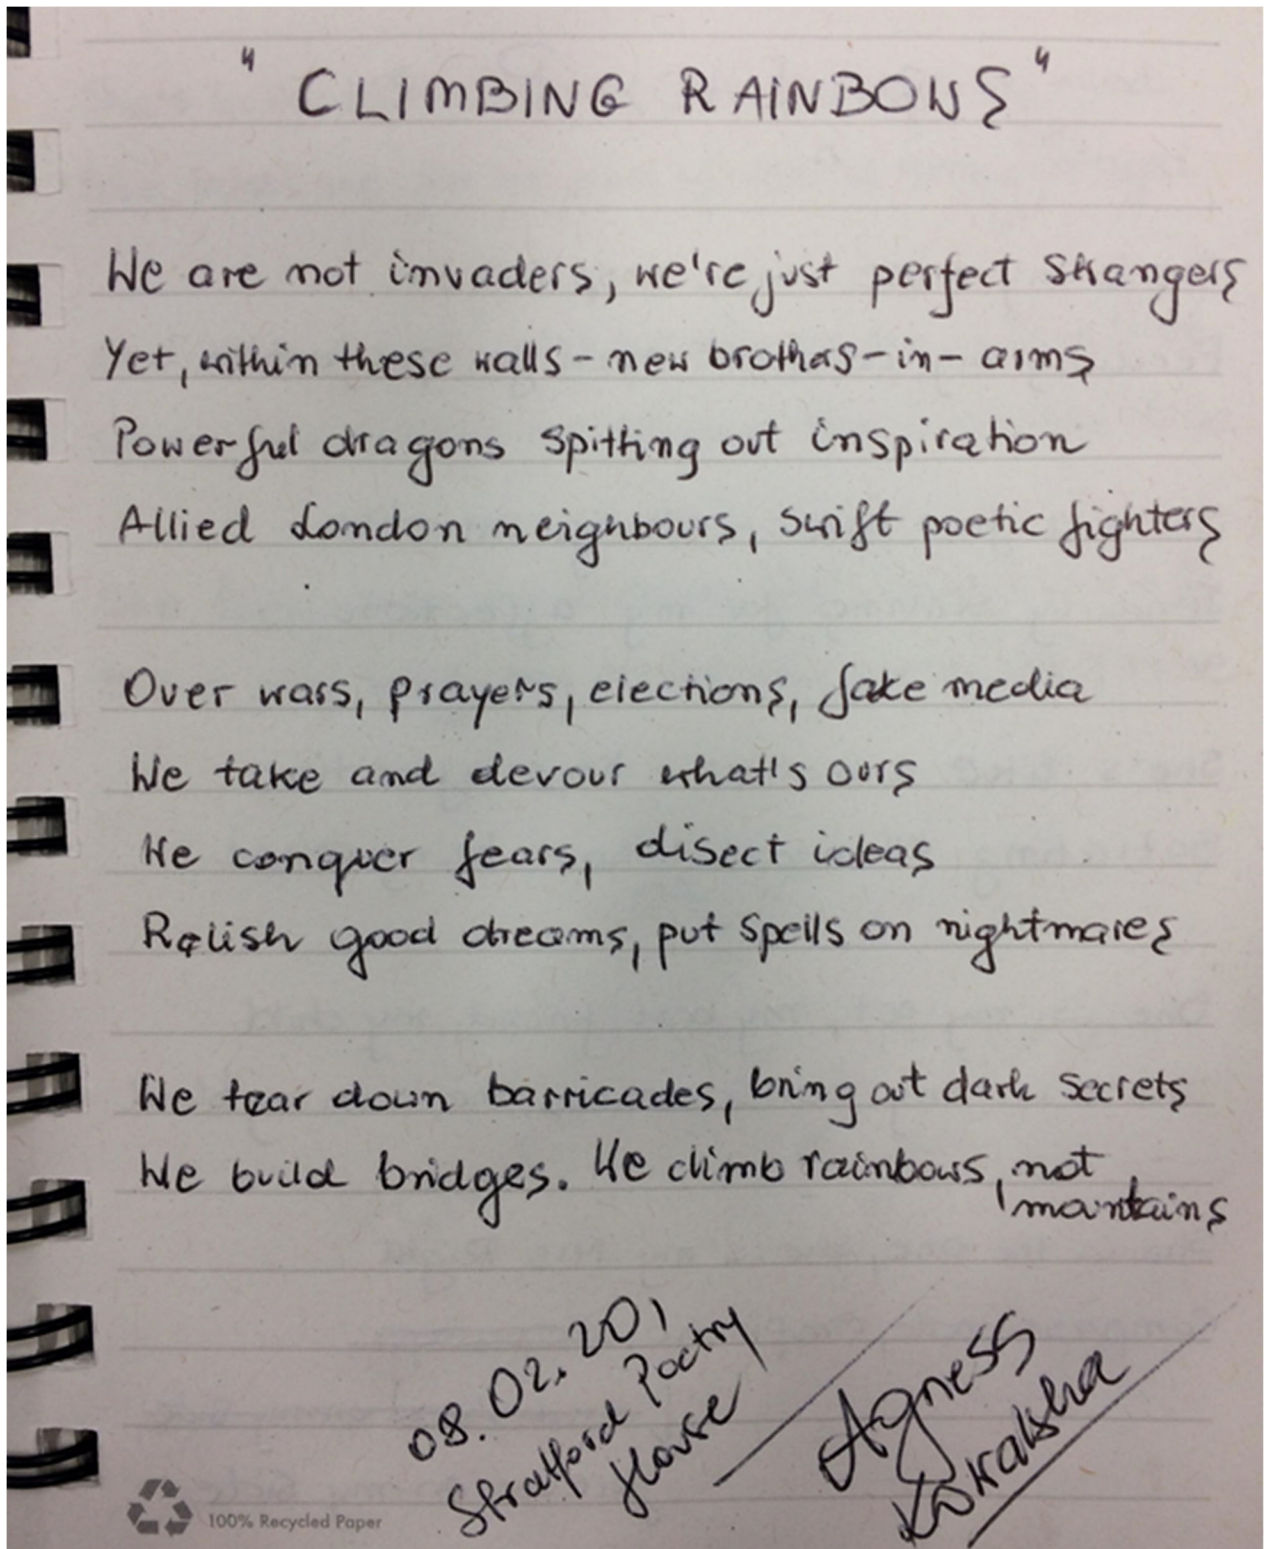 "CLIMBING RAINBOWS"
We are not invaders, we're just perfect strangers
Yet, within these walls - new brothers-in-arms
Powerful dragons spitting out inspiration
Allied London neighbours, swift poetic fighters
Over wars, prayers, elections, fake media
We take and devour what's ours
We conquer fears, disect ideas
Relish good dreams, put spells on nightmares
We tear down barricades, bring out dark secrets
We build bridges. We climb rainbows, not
mountains
08.02.201
Stratford Poetry
House
Agness
100% Recycled Paper